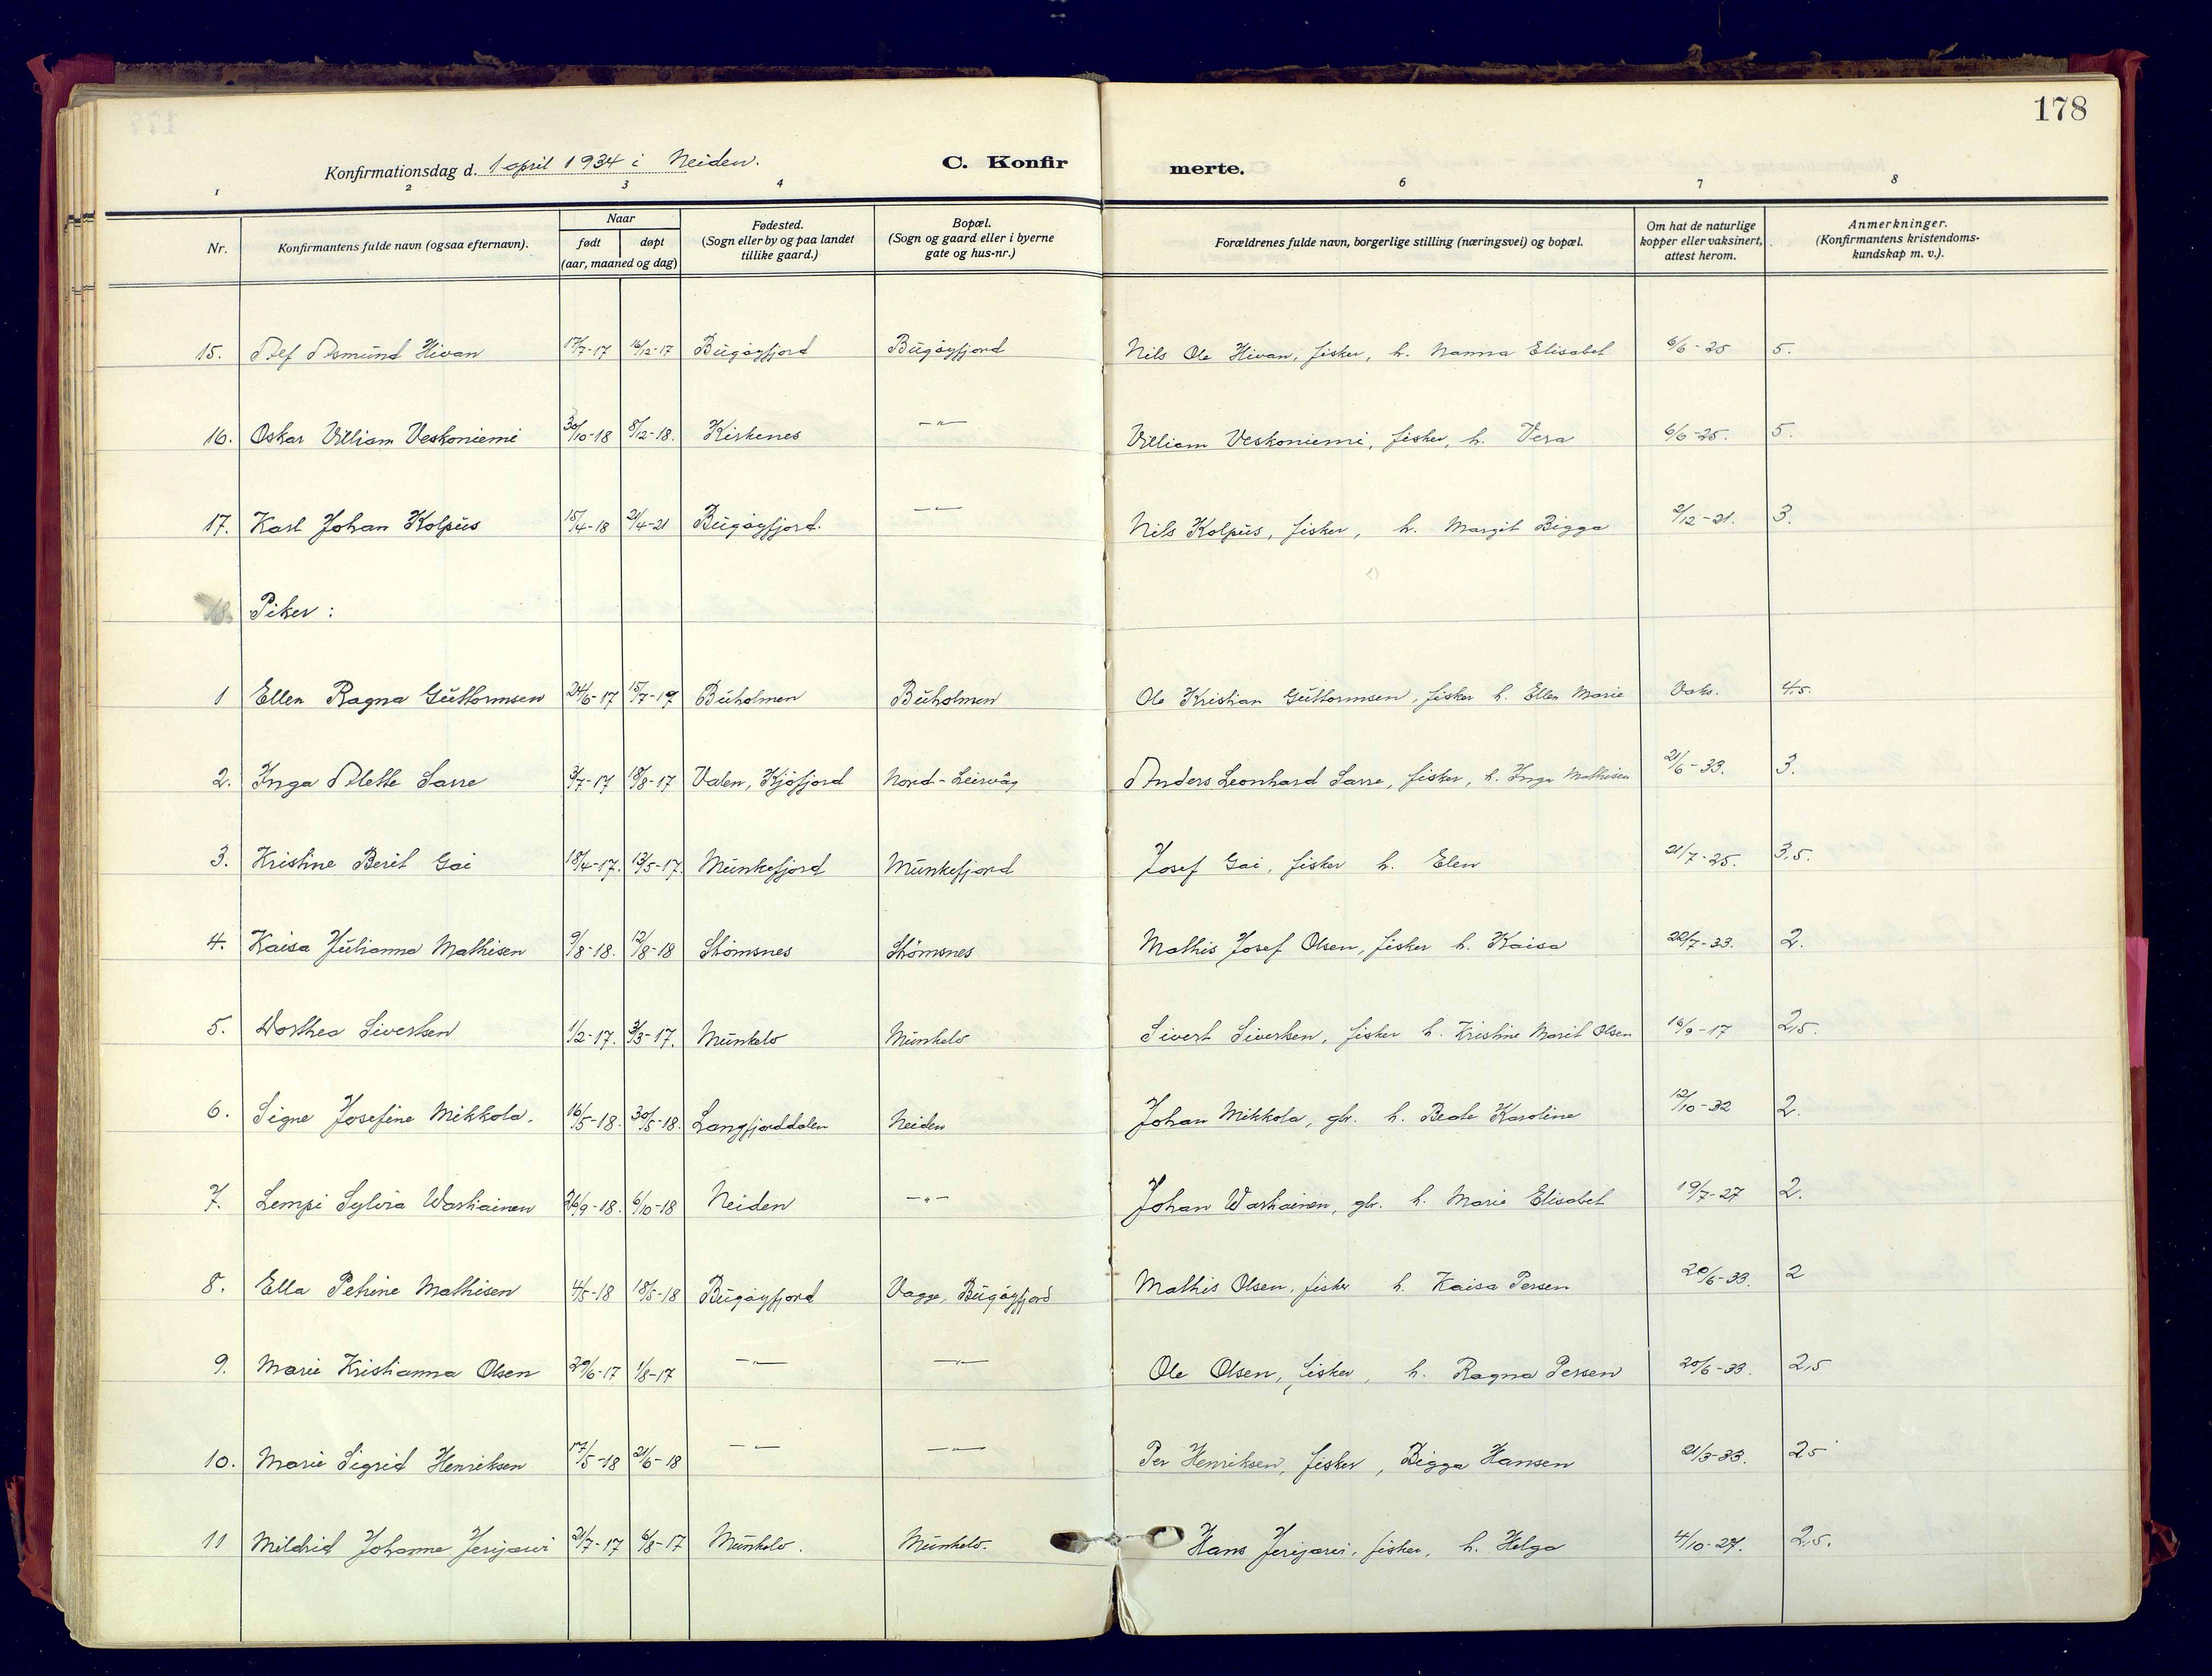 178
Konfirmationsdag d. 1 april 1934 i Neiden. C. Konfirmerte.
1 2 3 4 6 7 8
Nr. Konfirmantens fulde navn (ogsaa efternavn). Naar født døpt (aar, maaned og dag) Fødested. (Sogn eller by og paa landet tillike gaard.) Bopæl. (Sogn og gaard eller i byerne gate og hus-nr.) Forældrenes fulde navn, borgerlige stilling (næringsvei) og bopæl. Om hat de naturlige kopper eller vaksinert, attest herom. Anmerkninger. (Konfirmantens kristendoms-kundskap m. v.).
15. Alf Asmund Hivan 17/7-17 16/12-17 Bugøyfjord Bugøyfjord Nils Ole Hivan, fisker, h. Nanna Elisabet 6/6-25 5.
16. Oskar Villiam Veskoniemi 30/10-18 8/12-18. Kirkenes -"- Villiam Veskoniemi, fisker, h. Vera 6/6-25. 5.
17. Karl Johan Kolpus 15/4-18 21/4-21 Bugøyfjord. -"- Nils Kolpus, fisker, h. Margit Bigga 2/12-21. 3.
18. Piker:
1 Ellen Ragna Guttormsen 24/6-17 15/7-17 Buholmen Buholmen Ole Kristian Guttormsen, fisker h. Ellen Marie Vaks. 4,5.
2. Inga Alette Sarre 3/7-17 18/8-17 Valen, Kjøfjord Nord-Leirvåg Anders Leonhard Sarre, fisker, h. Inga Mathisen 21/6-33. 3.
3. Kristine Berit Gai 18/4-17. 13/5-17. Munkefjord Munkefjord Josef Gai, fisker h. Elen 21/7-25. 3,5.
4. Kaisa Julianna Mathisen 9/8-18. 12/8-18 Strømsnes Strømsnes Mathis Josef Olsen, fisker h. Kaisa 22/7-33. 2.
5. Dorthea Sivertsen 1/2-17. 3/3-17. Munkelv Munkelv Sivert Sivertsen, fisker h. Kristine Marit Olsen 16/9-17 2,5.
6. Signe Josefine Mikkola. 16/5-18. 30/5-18. Langfjorddalen Neiden Johan Mikkola, gbr. h. Beate Karoline 12/10-32 2.
7. Lempi Sylvia Wartiainen 26/9-18. 6/10-18 Neiden -"- Johan Wartiainen, gbr. h. Marie Elisabet 19/7-27 2.
8. Ella Petrine Mathisen 4/5-18 18/5-18 Bugøyfjord Vagge, Bugøyfjord Mathis Olsen, fisker h. Kaisa Persen 20/6-33. 2
9. Marie Kristianna Olsen 29/6-17 1/8-17 -"- -"- Ole Olsen, fisker, h. Ragna Persen 20/6-33. 2,5
10. Marie Sigrid Henriksen 17/5-18 21/6-18 -"- -"- Per Henriksen, fisker, Bigga Hansen 21/3-33. 2,5
11 Mildrid Johanne Jerijærvi 21/7-17 6/8-17 Munkelv. Munkelv. Hans Jerijærvi, fisker, h. Helga 4/10-27. 2,5.